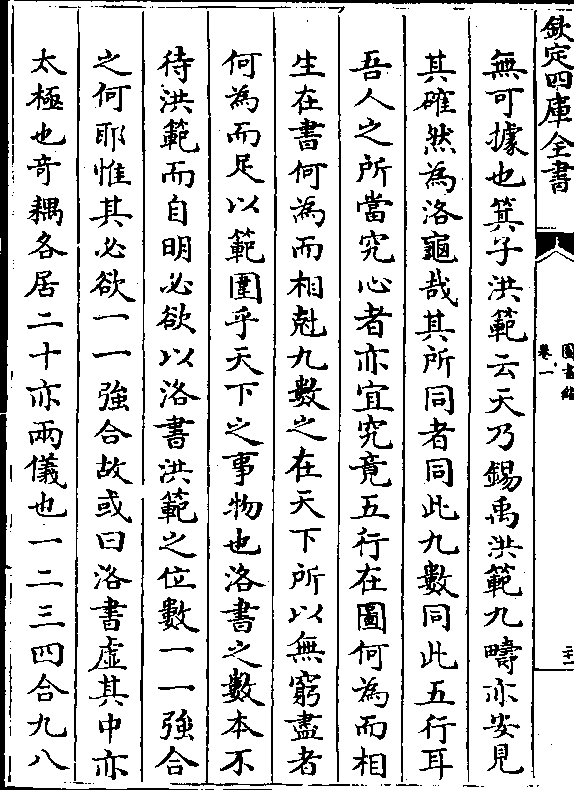 欽定四庫全書
圖書編
卷一
無可據也箕子洪範云天乃錫禹洪範九疇亦安見
其確然為洛龜哉其所同者同此九數同此五行耳
吾人之所當究心者亦宜究竟五行在圖何為而相
生在書何為而相尅九數之在天下所以無窮盡者
何為而足以範圍乎天下之事物也洛書之數本不
待洪範而自明必欲以洛書洪範之位數一一強合
之何耶惟其必欲一一強合故或曰洛書虛其中亦
太極也奇耦各居二十亦兩儀也一二三四合九八